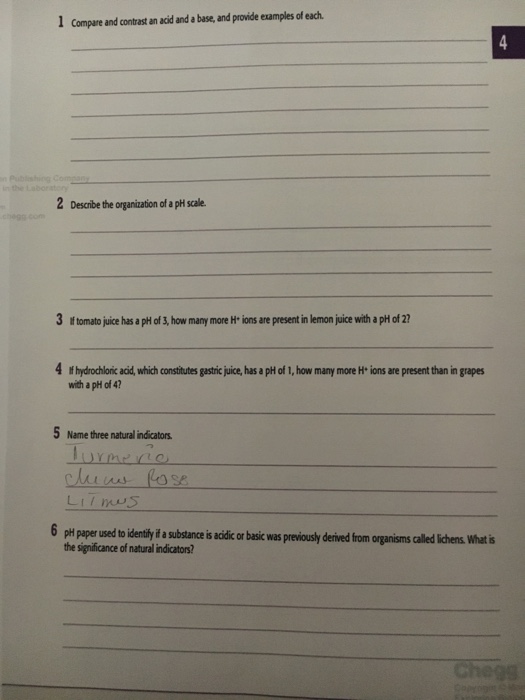 1 Compare and contrast an acid and a base, and provide examples of each.
4
Publishing Company
in the Laboratory
chegg.com
2 Describe the organization of a pH scale.
3 If tomato juice has a pH of 3, how many more H+ ions are present in lemon juice with a pH of 2?
4 If hydrochloric acid, which constitutes gastric juice, has a pH of 1, how many more H+ ions are present than in grapes
with a pH of 4?
5 Name three natural indicators.
Turmeric
Rose
LITmus
6 pH paper used to identify if a substance is acidic or basic was previously derived from organisms called lichens. What is
the significance of natural indicators?
Chegg